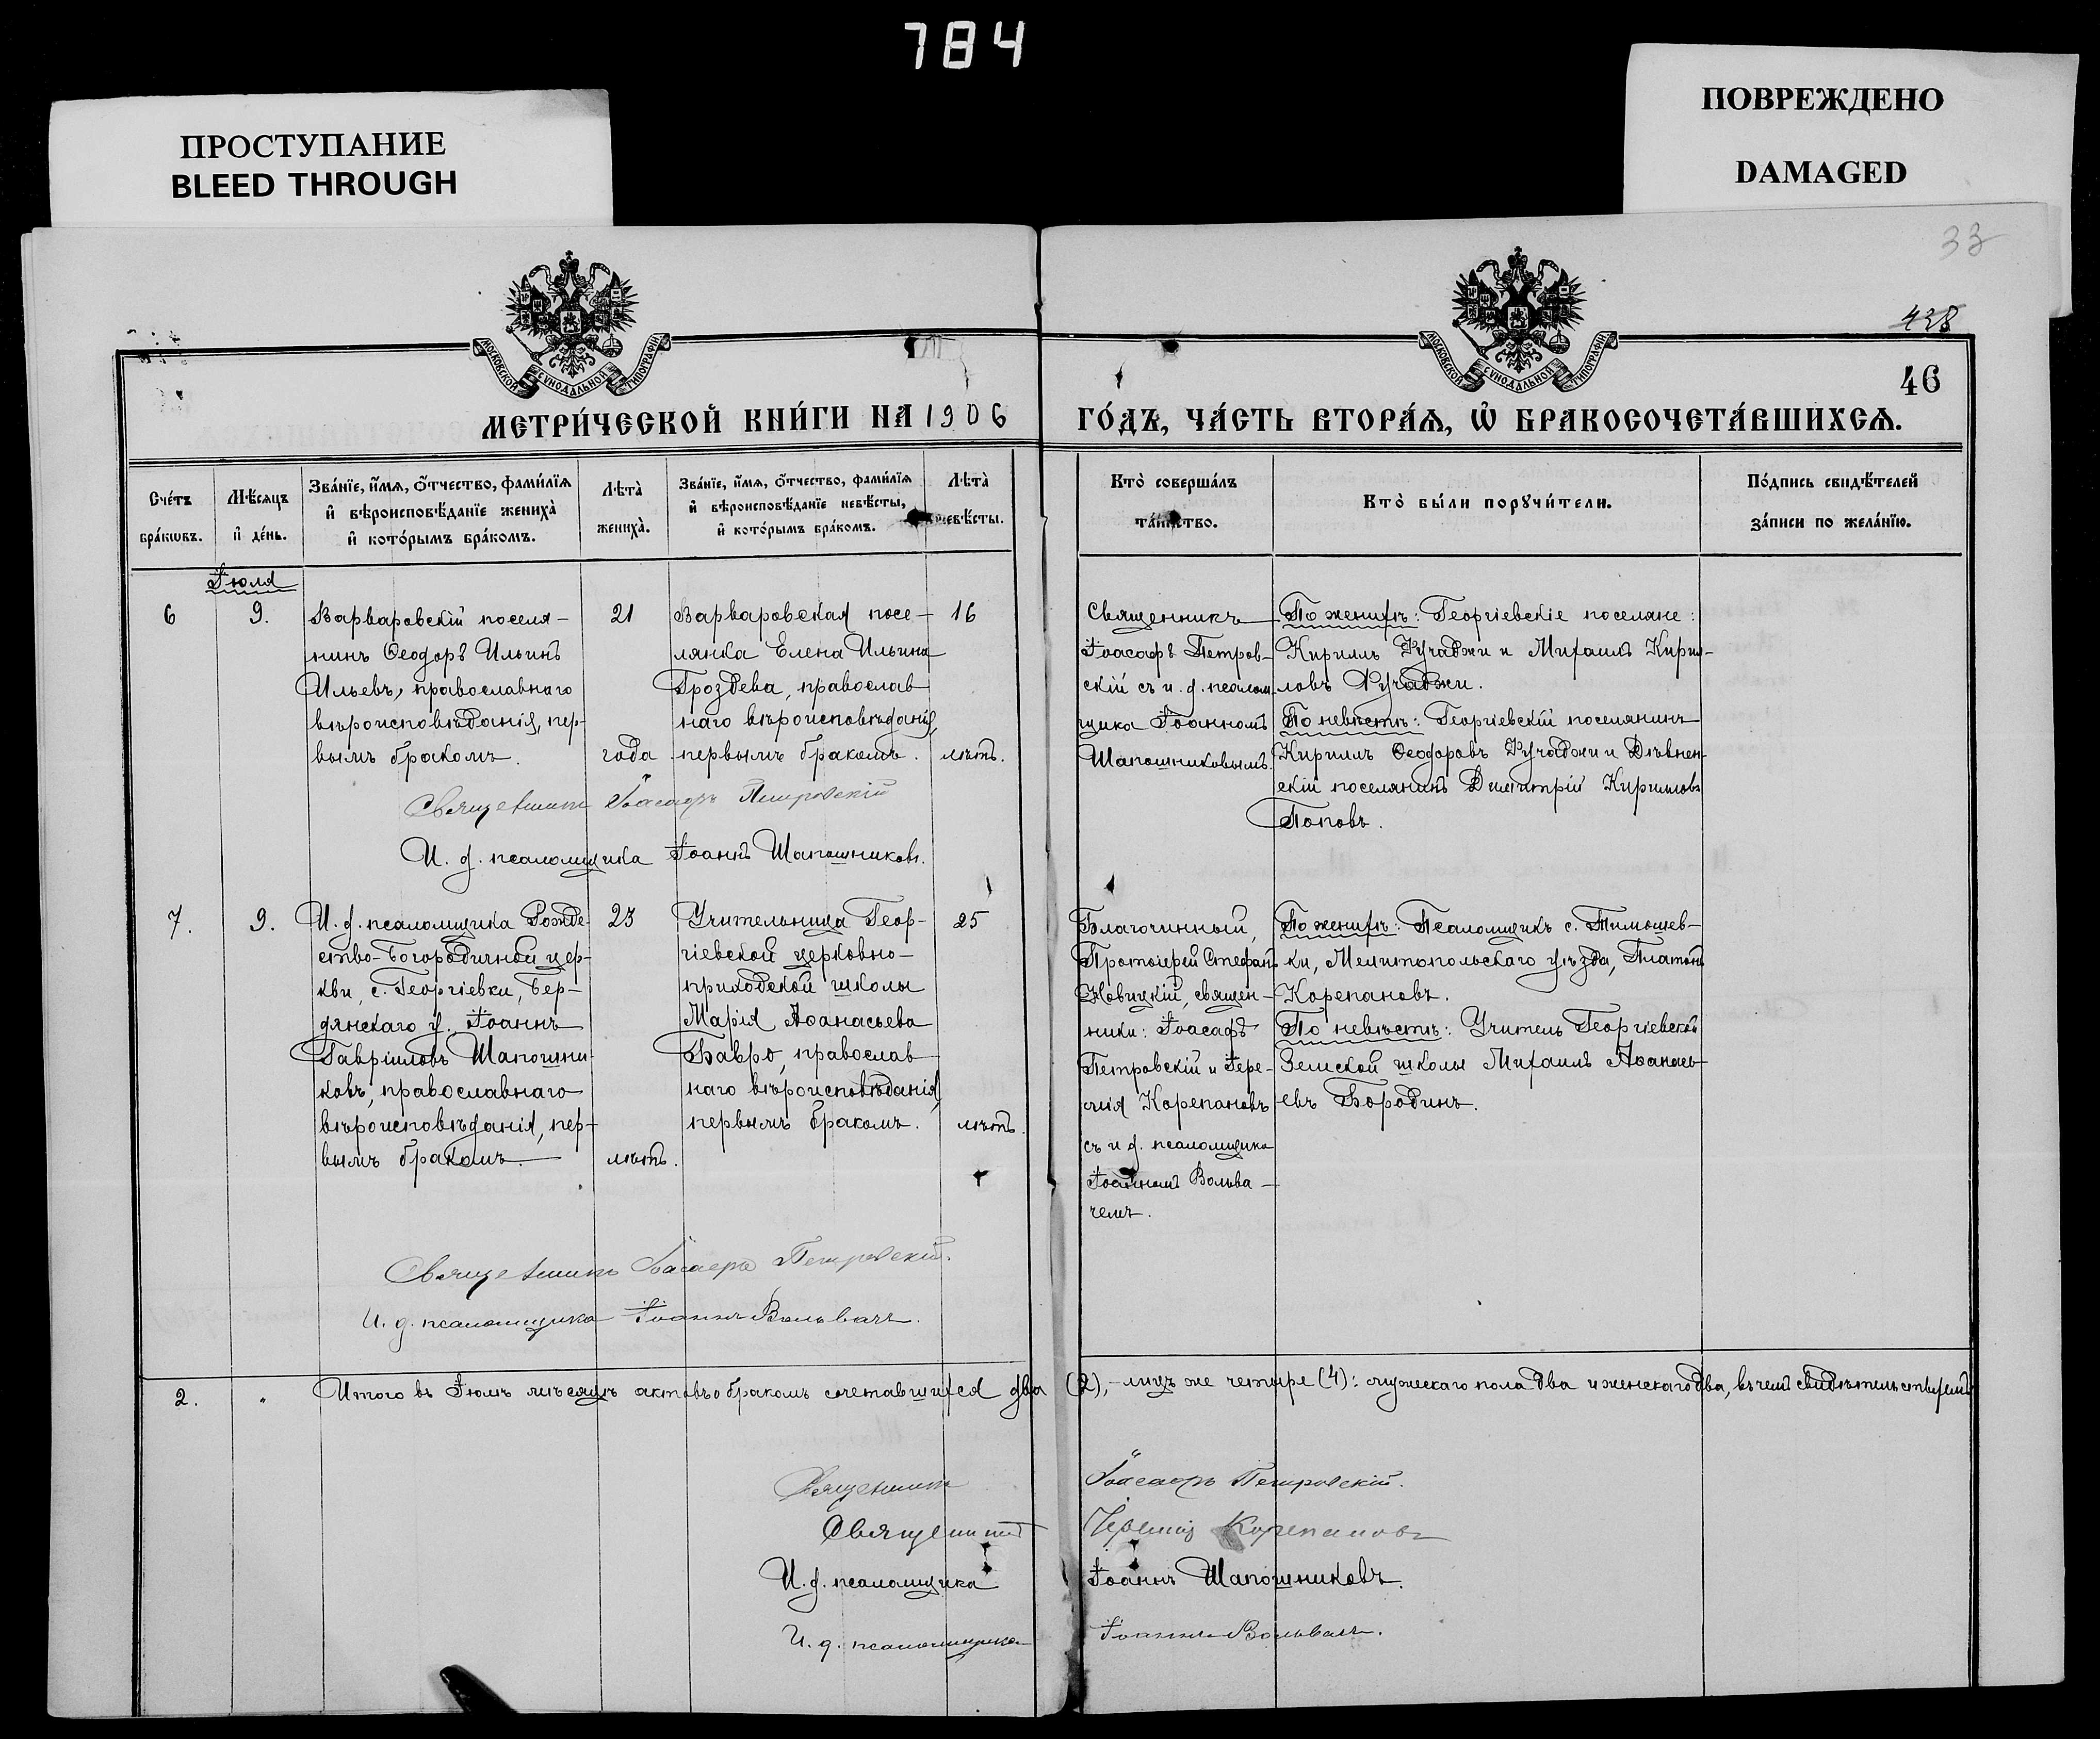 784
ПРОСТУПАНИЕ
BLEED THROUGH
ПОВРЕЖДЕНО
DAMAGED
33
438
46
МОСКОВСКОЙ СѴНОДАЛЬНОЙ ТИПОГРАФІИ
МОСКОВСКОЙ СѴНОДАЛЬНОЙ ТИПОГРАФІИ
МЕТРИ́ЧЕСКОЙ КНИ́ГИ НА 1906 ГО́ДЪ, ЧА́СТЬ ВТОРА́Ѧ, Ѡ҆ БРАКОСОЧЕТА́ВШИХСѦ.
Сче́тъ бра́кѡвъ.
Мѣ́сяцъ и҆ де́нь.
Зва́нїе, и҆́мя, ѻ҆́тчество, фами́лїя
и҆ вѣроисповѣ́данїе жениха̀
и҆ кото́рымъ бра́комъ.
Лѣта̀ жениха̀.
Зва́нїе, и҆́мя, ѻ҆́тчество, фами́лїя
и҆ вѣроисповѣ́данїе невѣ́сты,
и҆ кото́рымъ бра́комъ.
Лѣта̀ невѣ́сты.
Кто̀ соверша́лъ та́инство.
Кто̀ бы́ли порꙋчи́тели.
По́дпись свидѣ́телей
за́писи по жела́нїю.
Іюля
6
9.
Варваровскій поселя-
нинъ Ѳеодоръ Ильинъ
Ильевъ, православнаго
вѣроисповѣданія, пер-
вымъ бракомъ.
21
года
Варваровская посе-
лянка Елена Ильина
Гроздева, православ
наго вѣроисповѣданія,
первымъ бракомъ.
16
лѣтъ.
Священникъ
Іоасафъ Петров-
скій съ и. д. псалом-
щика Іоанномъ
Шапошниковымъ.
По женихѣ: Георгіевскіе поселяне:
Кириллъ Кучаджи и Михаилъ Кирил-
ловъ Кучаджи.
По невѣстѣ: Георгіевскій поселянинъ
Кириллъ Ѳеодоровъ Кучаджи и Дѣвнен-
скій поселянинъ Димитрій Кирилловъ
Поповъ.
Священникъ Іоасафъ Петровскій
И. д. псаломщика Іоаннъ Шапошниковъ.
7.
9.
И. д. псаломщика Рожде-
ство-Богородичной цер-
кви, с. Георгіевки, Бер-
дянскаго у. Іоаннъ
Гавріиловъ Шапошни-
ковъ, православнаго
вѣроисповѣданія, пер-
вымъ бракомъ.
23
лѣтъ.
Учительница Геор-
гіевской церковно-
приходской школы
Марія Аѳанасьева
Бавро, православ
наго вѣроисповѣданія,
первымъ бракомъ.
25
лѣтъ.
Благочинный,
Протоіерей Стефанъ
Новицкій, священ-
ники: Іоасафъ
Петровскій и Іере-
мія Корепановъ
съ и д. псаломщика
Іоанномъ Вольва-
чемъ.
По женихѣ: Псаломщикъ с. Тимошев-
ки, Мелитопольскаго уѣзда, Платонъ
Корепановъ.
По невѣстѣ: Учитель Георгіевской
Земской школы Михаилъ Аѳанась-
евъ Бородинъ.
Священникъ Іоасафъ Петровскій.
И. д. псаломщика Іоаннъ Вольвачъ.
2.
"
Итого въ Іюлѣ мѣсяцѣ актовъ о бракомъ сочетавшихся два (2), - лицъ же четыре (4): мужескаго пола два и женскаго два, въ чемъ свидѣтельствуемъ
Священникъ Іоасафъ Петровскій.
Священникъ Іеремія Корепановъ
И. д. псаломщика Іоаннъ Шапошниковъ.
И. д. псаломщика Іоаннъ Вольвачъ.